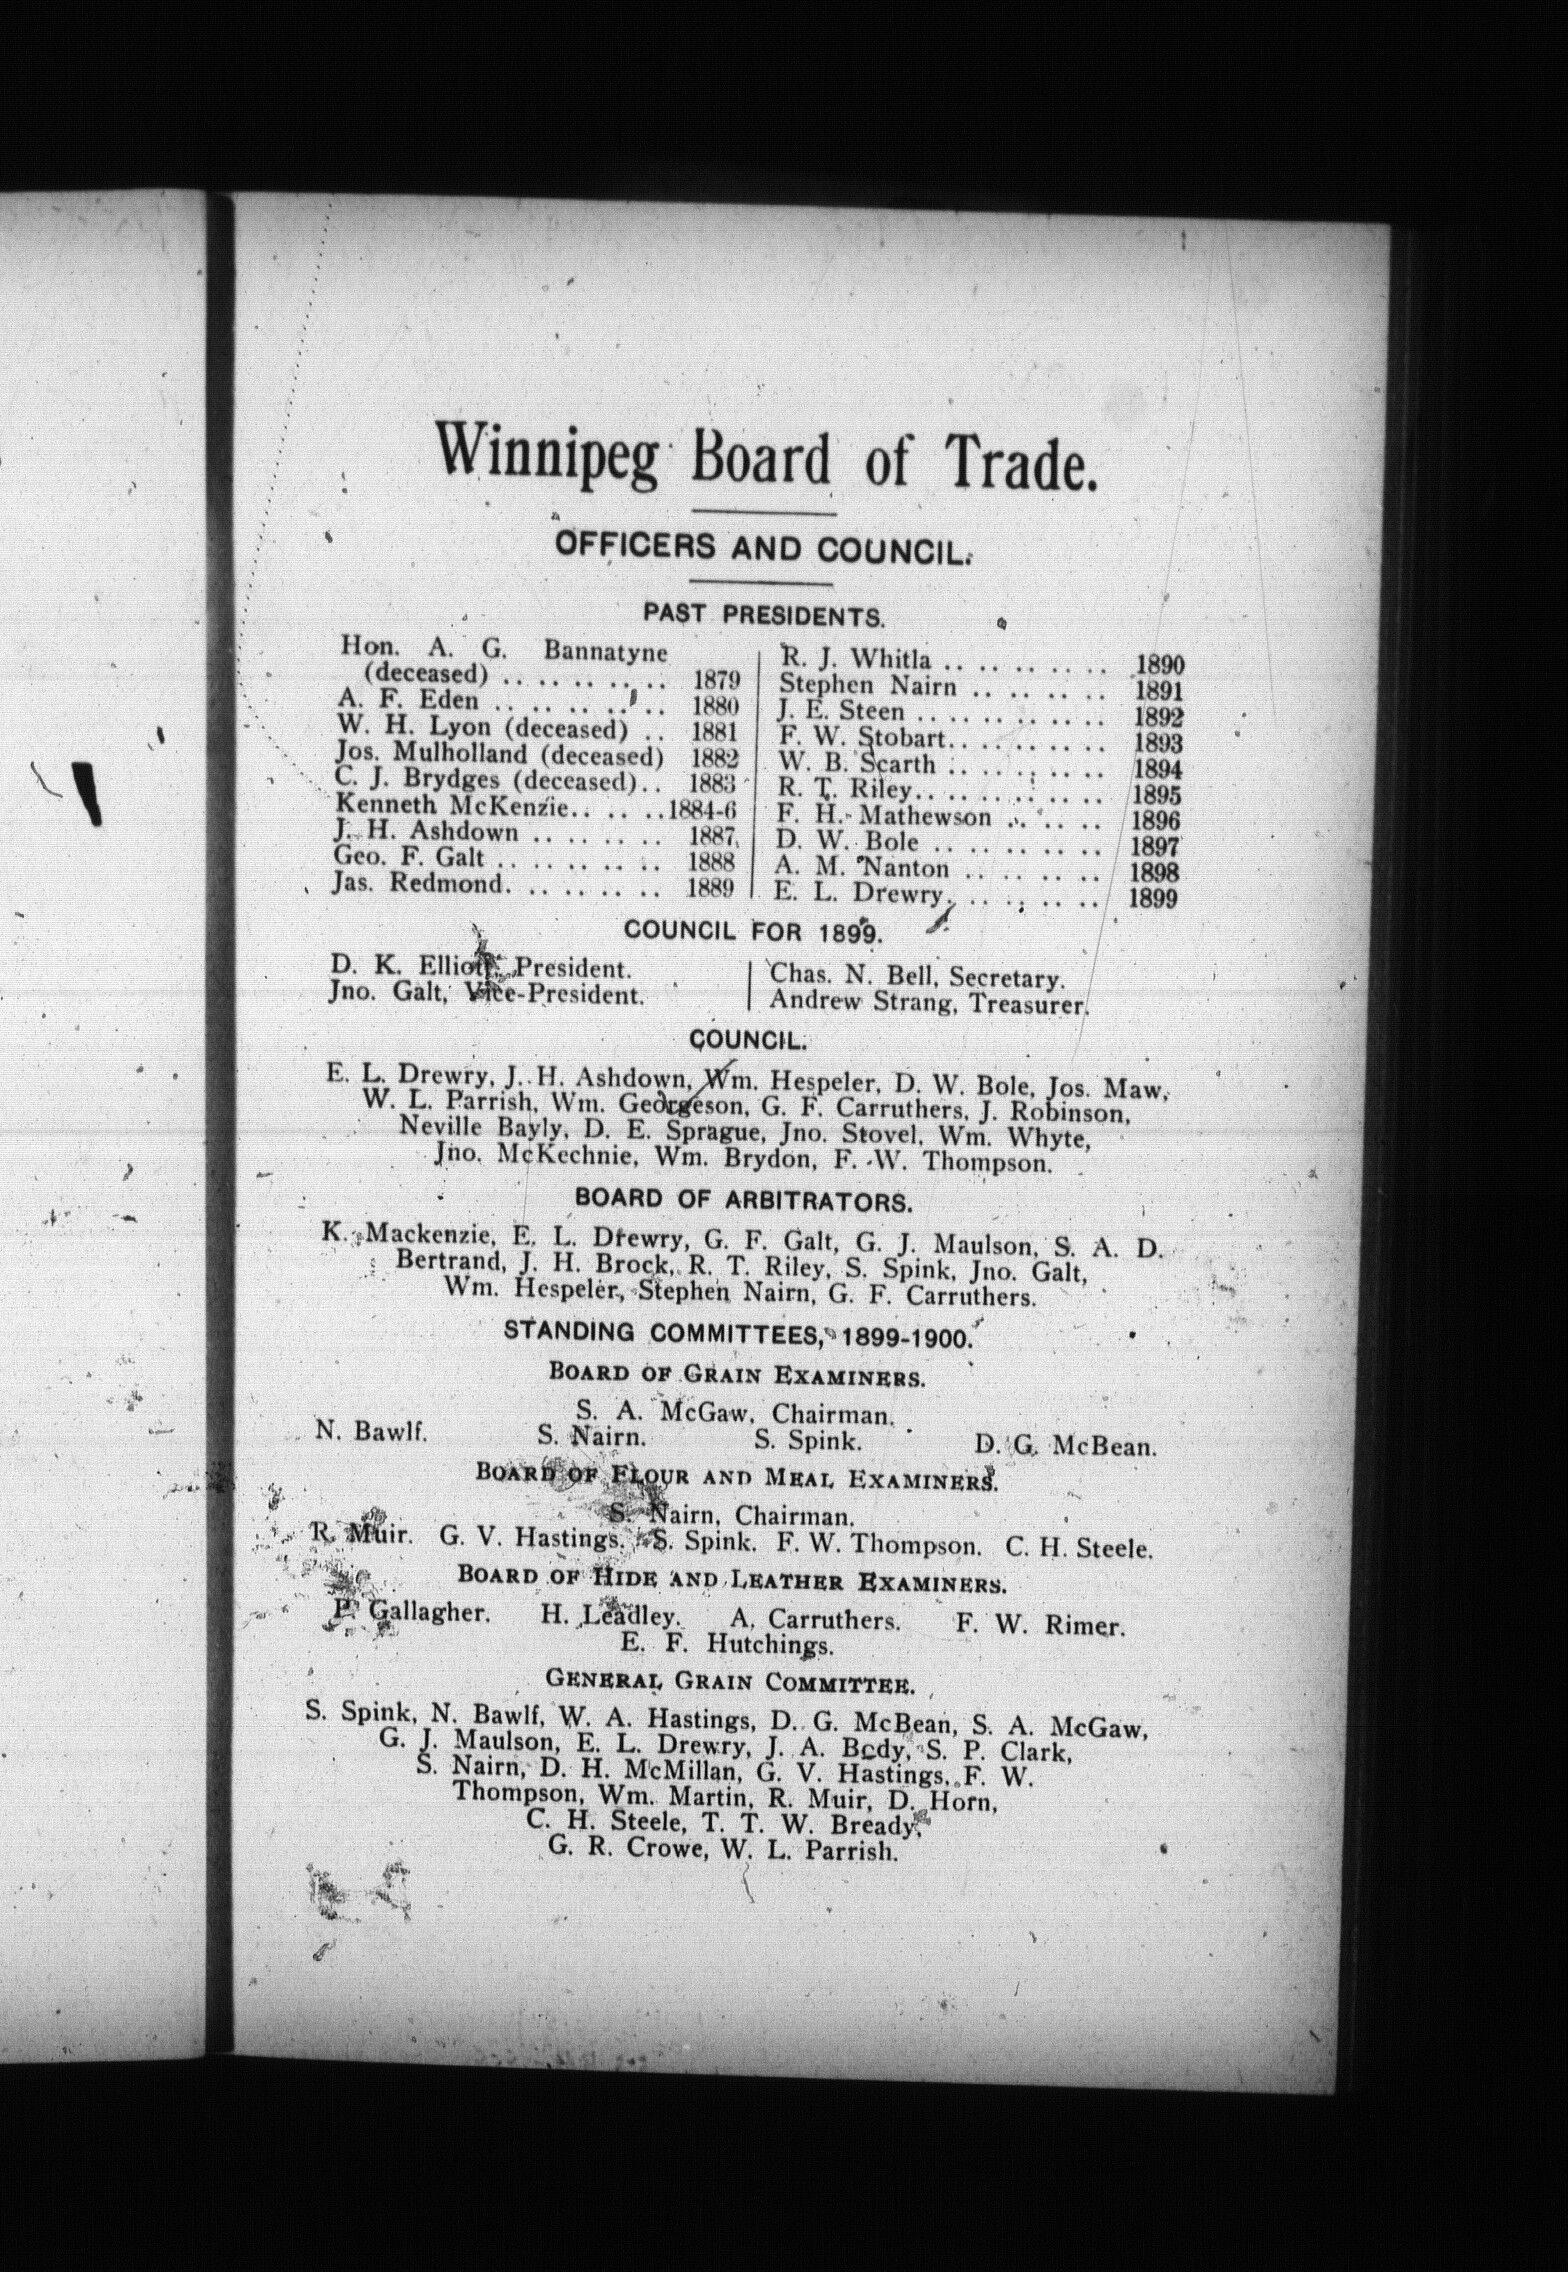 Winnipeg Board of Trade.
OFFICERS AND COUNCIL.
PAST PRESIDENTS.
Hon. A. G. Bannatyne
(deceased) .. .. .. .. .. 1879
A. F. Eden .. .. .. .. .. 1880
W. H. Lyon (deceased) .. 1881
Jos. Mulholland (deceased) 1882
C. J. Brydges (deceased).. 1883
Kenneth McKenzie.. .. ..1884-6
J. H. Ashdown .. .. .. .. 1887
Geo. F. Galt .. .. .. .. .. 1888
Jas. Redmond. .. .. .. .. 1889
R. J. Whitla .. .. .. .. .. 1890
Stephen Nairn .. .. .. .. 1891
J. E. Steen .. .. .. .. .. .. 1892
F. W. Stobart.. .. .. .. .. 1893
W. B. Scarth .. .. .. .. .. 1894
R. T. Riley.. .. .. .. .. .. 1895
F. H. Mathewson .. .. .. 1896
D. W. Bole .. .. .. .. .. 1897
A. M. Nanton .. .. .. .. 1898
E. L. Drewry. .. .. .. .. 1899
COUNCIL FOR 1899.
D. K. Elliott, President.
Jno. Galt, Vice-President.
Chas. N. Bell, Secretary.
Andrew Strang, Treasurer.
COUNCIL.
E. L. Drewry, J. H. Ashdown, Wm. Hespeler, D. W. Bole, Jos. Maw,
W. L. Parrish, Wm. Georgeson, G. F. Carruthers, J. Robinson,
Neville Bayly, D. E. Sprague, Jno. Stovel, Wm. Whyte,
Jno. McKechnie, Wm. Brydon, F. W. Thompson.
BOARD OF ARBITRATORS.
K. Mackenzie, E. L. Drewry, G. F. Galt, G. J. Maulson, S. A. D.
Bertrand, J. H. Brock, R. T. Riley, S. Spink, Jno. Galt,
Wm. Hespeler, Stephen Nairn, G. F. Carruthers.
STANDING COMMITTEES, 1899-1900.
BOARD OF GRAIN EXAMINERS.
S. A. McGaw, Chairman.
N. Bawlf. S. Nairn. S. Spink. D. G. McBean.
BOARD OF FLOUR AND MEAL EXAMINERS.
S. Nairn, Chairman.
R. Muir. G. V. Hastings. S. Spink. F. W. Thompson. C. H. Steele.
BOARD OF HIDE AND LEATHER EXAMINERS.
P. Gallagher. H. Leadley. A. Carruthers. F. W. Rimer.
E. F. Hutchings.
GENERAL GRAIN COMMITTEE.
S. Spink, N. Bawlf, W. A. Hastings, D. G. McBean, S. A. McGaw,
G. J. Maulson, E. L. Drewry, J. A. Bedy, S. P. Clark,
S. Nairn, D. H. McMillan, G. V. Hastings, F. W.
Thompson, Wm. Martin, R. Muir, D. Horn,
C. H. Steele, T. T. W. Bready,
G. R. Crowe, W. L. Parrish.